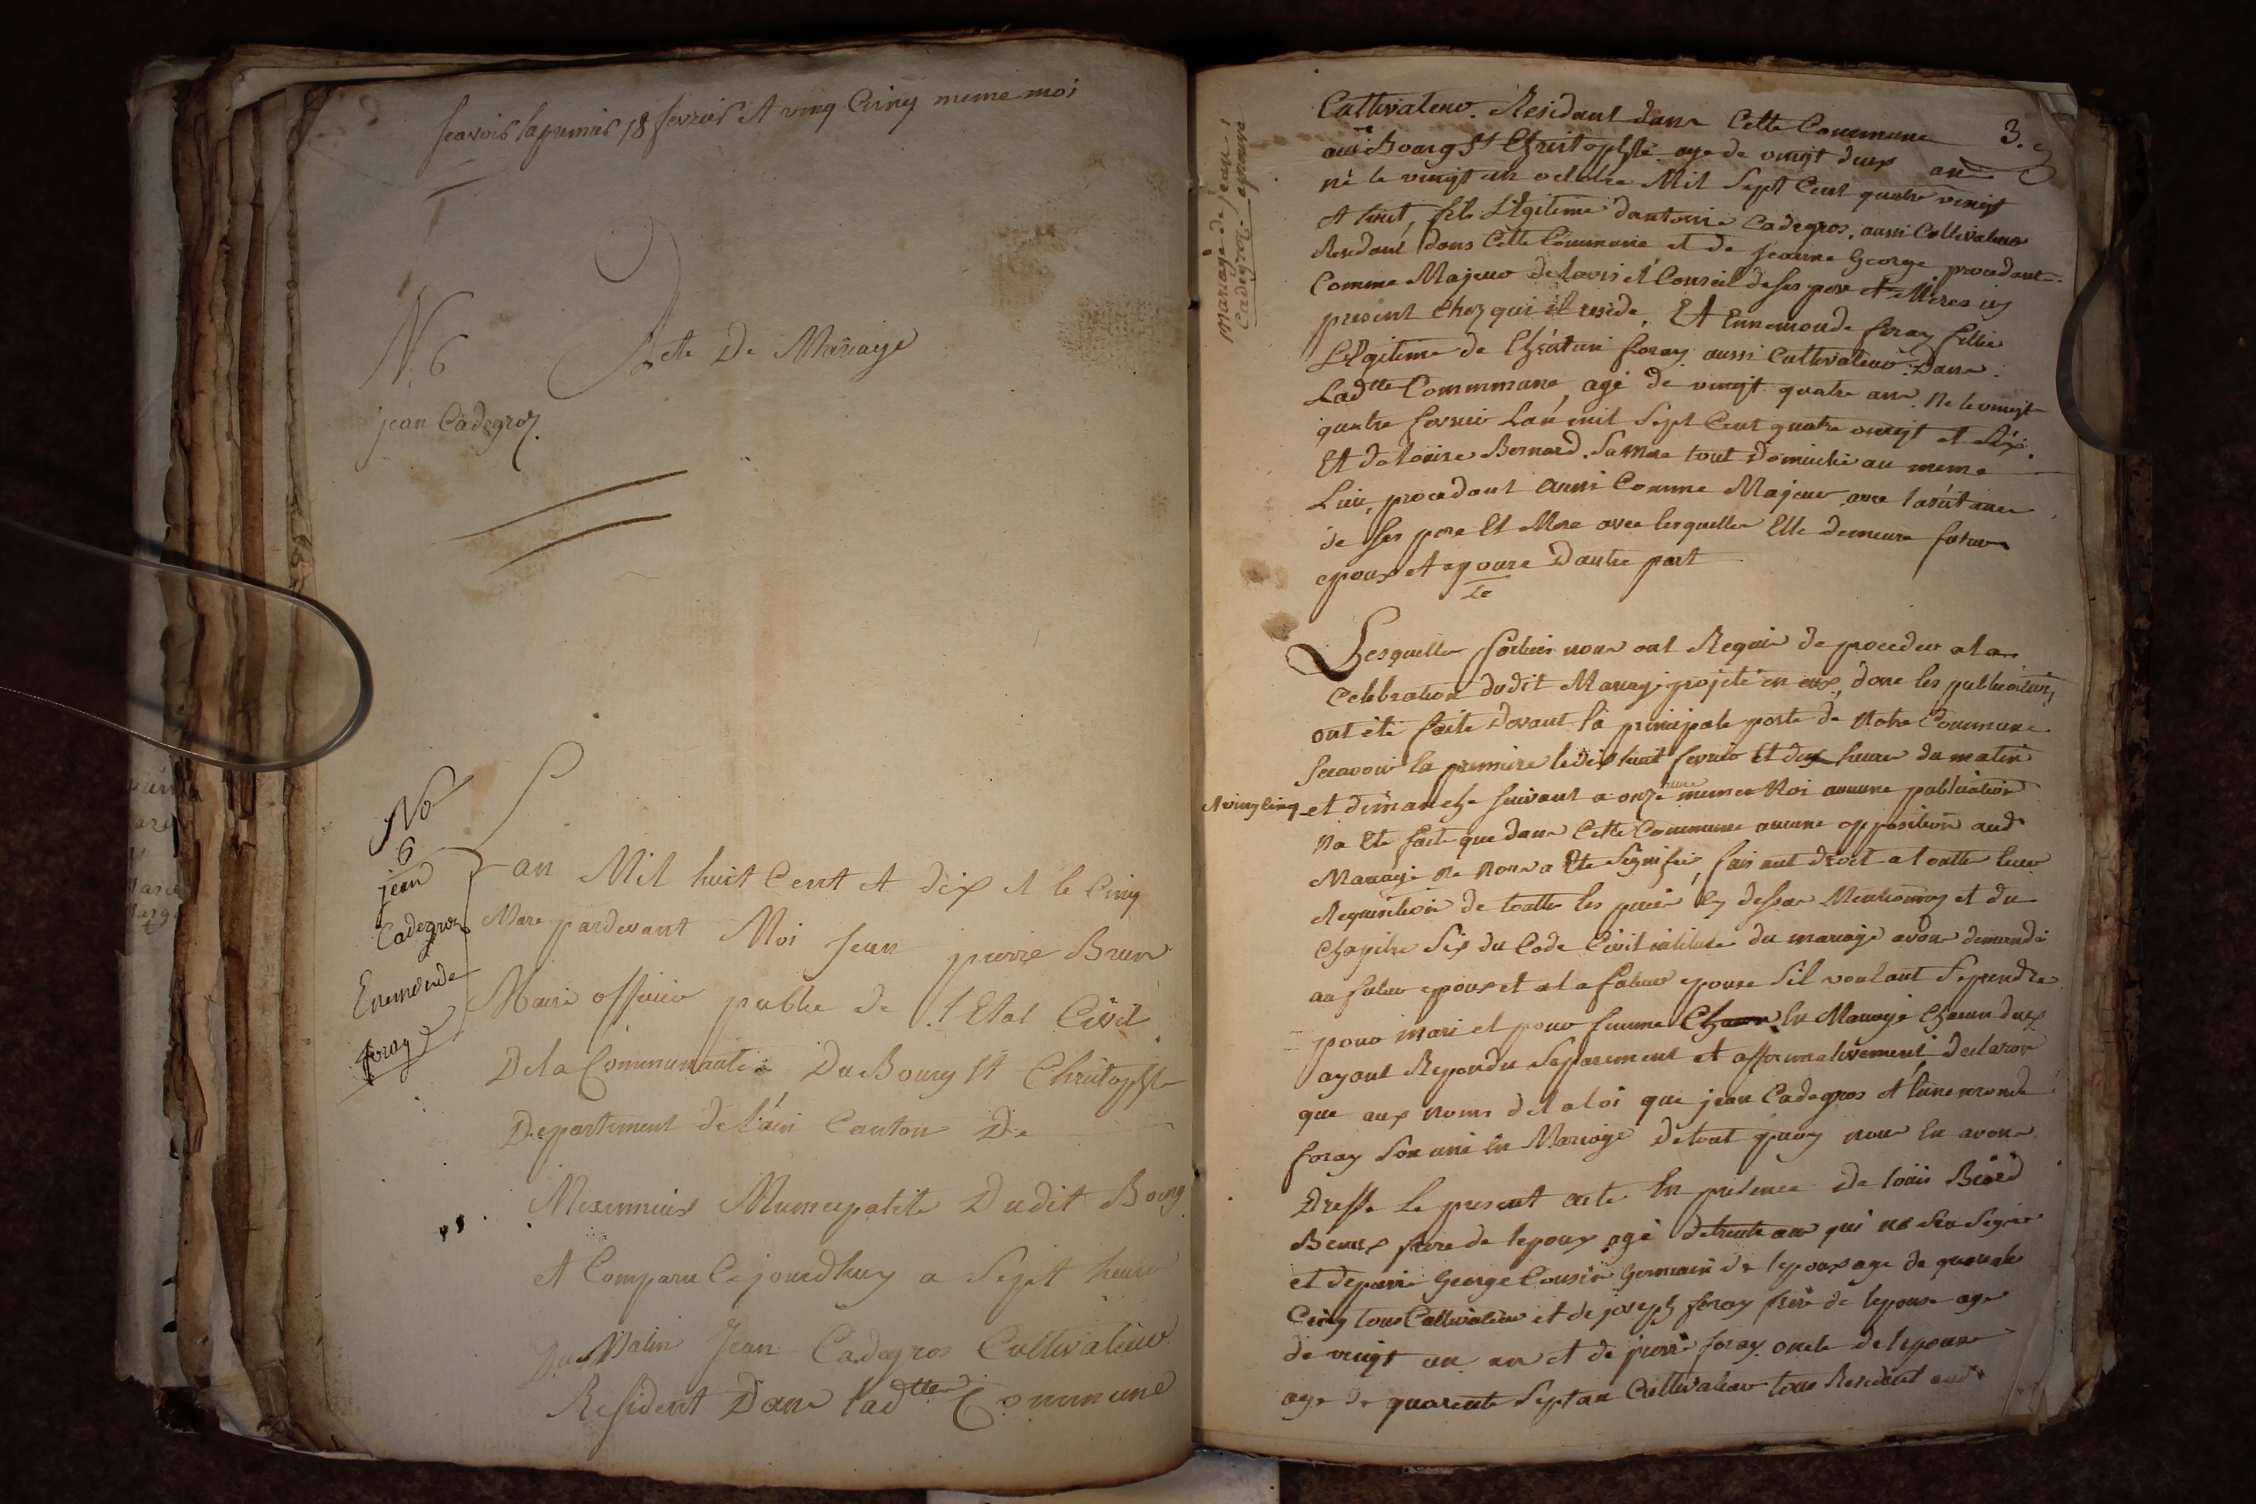 Seavoir la premier 18 fevrier et ving Cinq meme moi
N. 6
Acte De Mariage
jean Cadegroz
No
6
jean
Cadegroz
Enemonde
foray
L
an Mil huit Cent et dix et le Cinq
Mars pardevant Moi Jean pierre Brun
Maire officier public de l'Etat Civil
De la Communauté Du Bourg St Christophle
Departement de l'ain Canton De
Mexemieux Municipalité Dudit Bourg
et Comparu Cejourdhuy a Sept heure
Du Matin Jean Cadegros Cultivateur
Resident Dans ladtte Commune
mariage de jean
Cadegroz
3.
Cultivateur. Residant dans Cette Commune
au Bourg St Christophle age de vingt deux an
né le vingt un octobre Mil Sept Cent quatre vingt
et huit, fils Légitime dantoine Cadegros, aussi Cultivateur
Residant dans Cette Commune et de jeanne George procedant
Comme Majeur de lavis et Conseil de Ses pere et Meres icy
present Chez qui il reside, Et Ennemonde foray fillie
Légitime de foray aussi Cultivateur Dans
Ladtte Commmune, agé de vingt quatre ans Né le vingt
quatre fevrier Lan mil Sept Cent quatre vingt et Six
Et de louise Bernard Sa Mere tout Domicilié au meme
Lieu, procedant aussi Comme Majeur avec
de Ses pere Et Mere avec lesquelles Elle demeure futurs
epoux et epouse Dautre part
Lesquelles nous ont Requis de proceder a la
Celebration dudit Mariage projeté en eux, dont les publications
ont été faite devant la principale porte de Notre Commune
Scavoir la premiere le dix huit fevrier et dix heure du matin
et ving Cinq et dimanche Suivant a onze heure meme Moi aucune publication
Na Eté faite que dans Cette Commune aucune opposition aud
Mariage ne Nous a Eté Signifié, faisant droit a toutte leur
Requisition de toutte les piece Cy dessus Mentionnez et du
Chapitre Six du Code Civil intitulé du mariage avons demandé
au futur epoux et a la future epouse Sil veulent Se prendre
pour mari et pour femme En Mariage Chacun deux
ayant Repondu Separement et affirmativement, declaron
que aux Noms de la loi que jean Cadegros et Ennemonde
foray Son uni en Mariage detout quoy nous En avons
Dresse Le present acte En presence De louis
Beaux frere de lepoux agé detrente an qui ne Seu Signer
et de pierre George Cousin Germain de lepoux age de quarante
Cinq tous Cultivateur et de joseph foray frere de lepouse age
de vingt un an et de pierre foray oncle de lepouse
age de quarente Sept an Cultivateur tous Resident aud